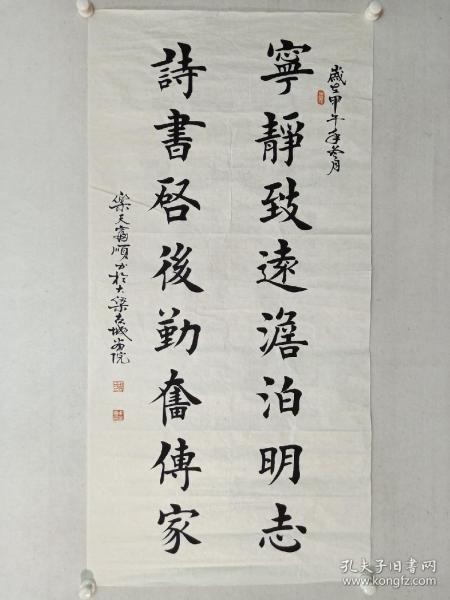 歲呈甲午年冬月
寧靜致遠澹泊明志
詩書啓後勤奮傳家
樂天富順書於大梁古城書院
孔夫子旧书网
www.kongfz.com